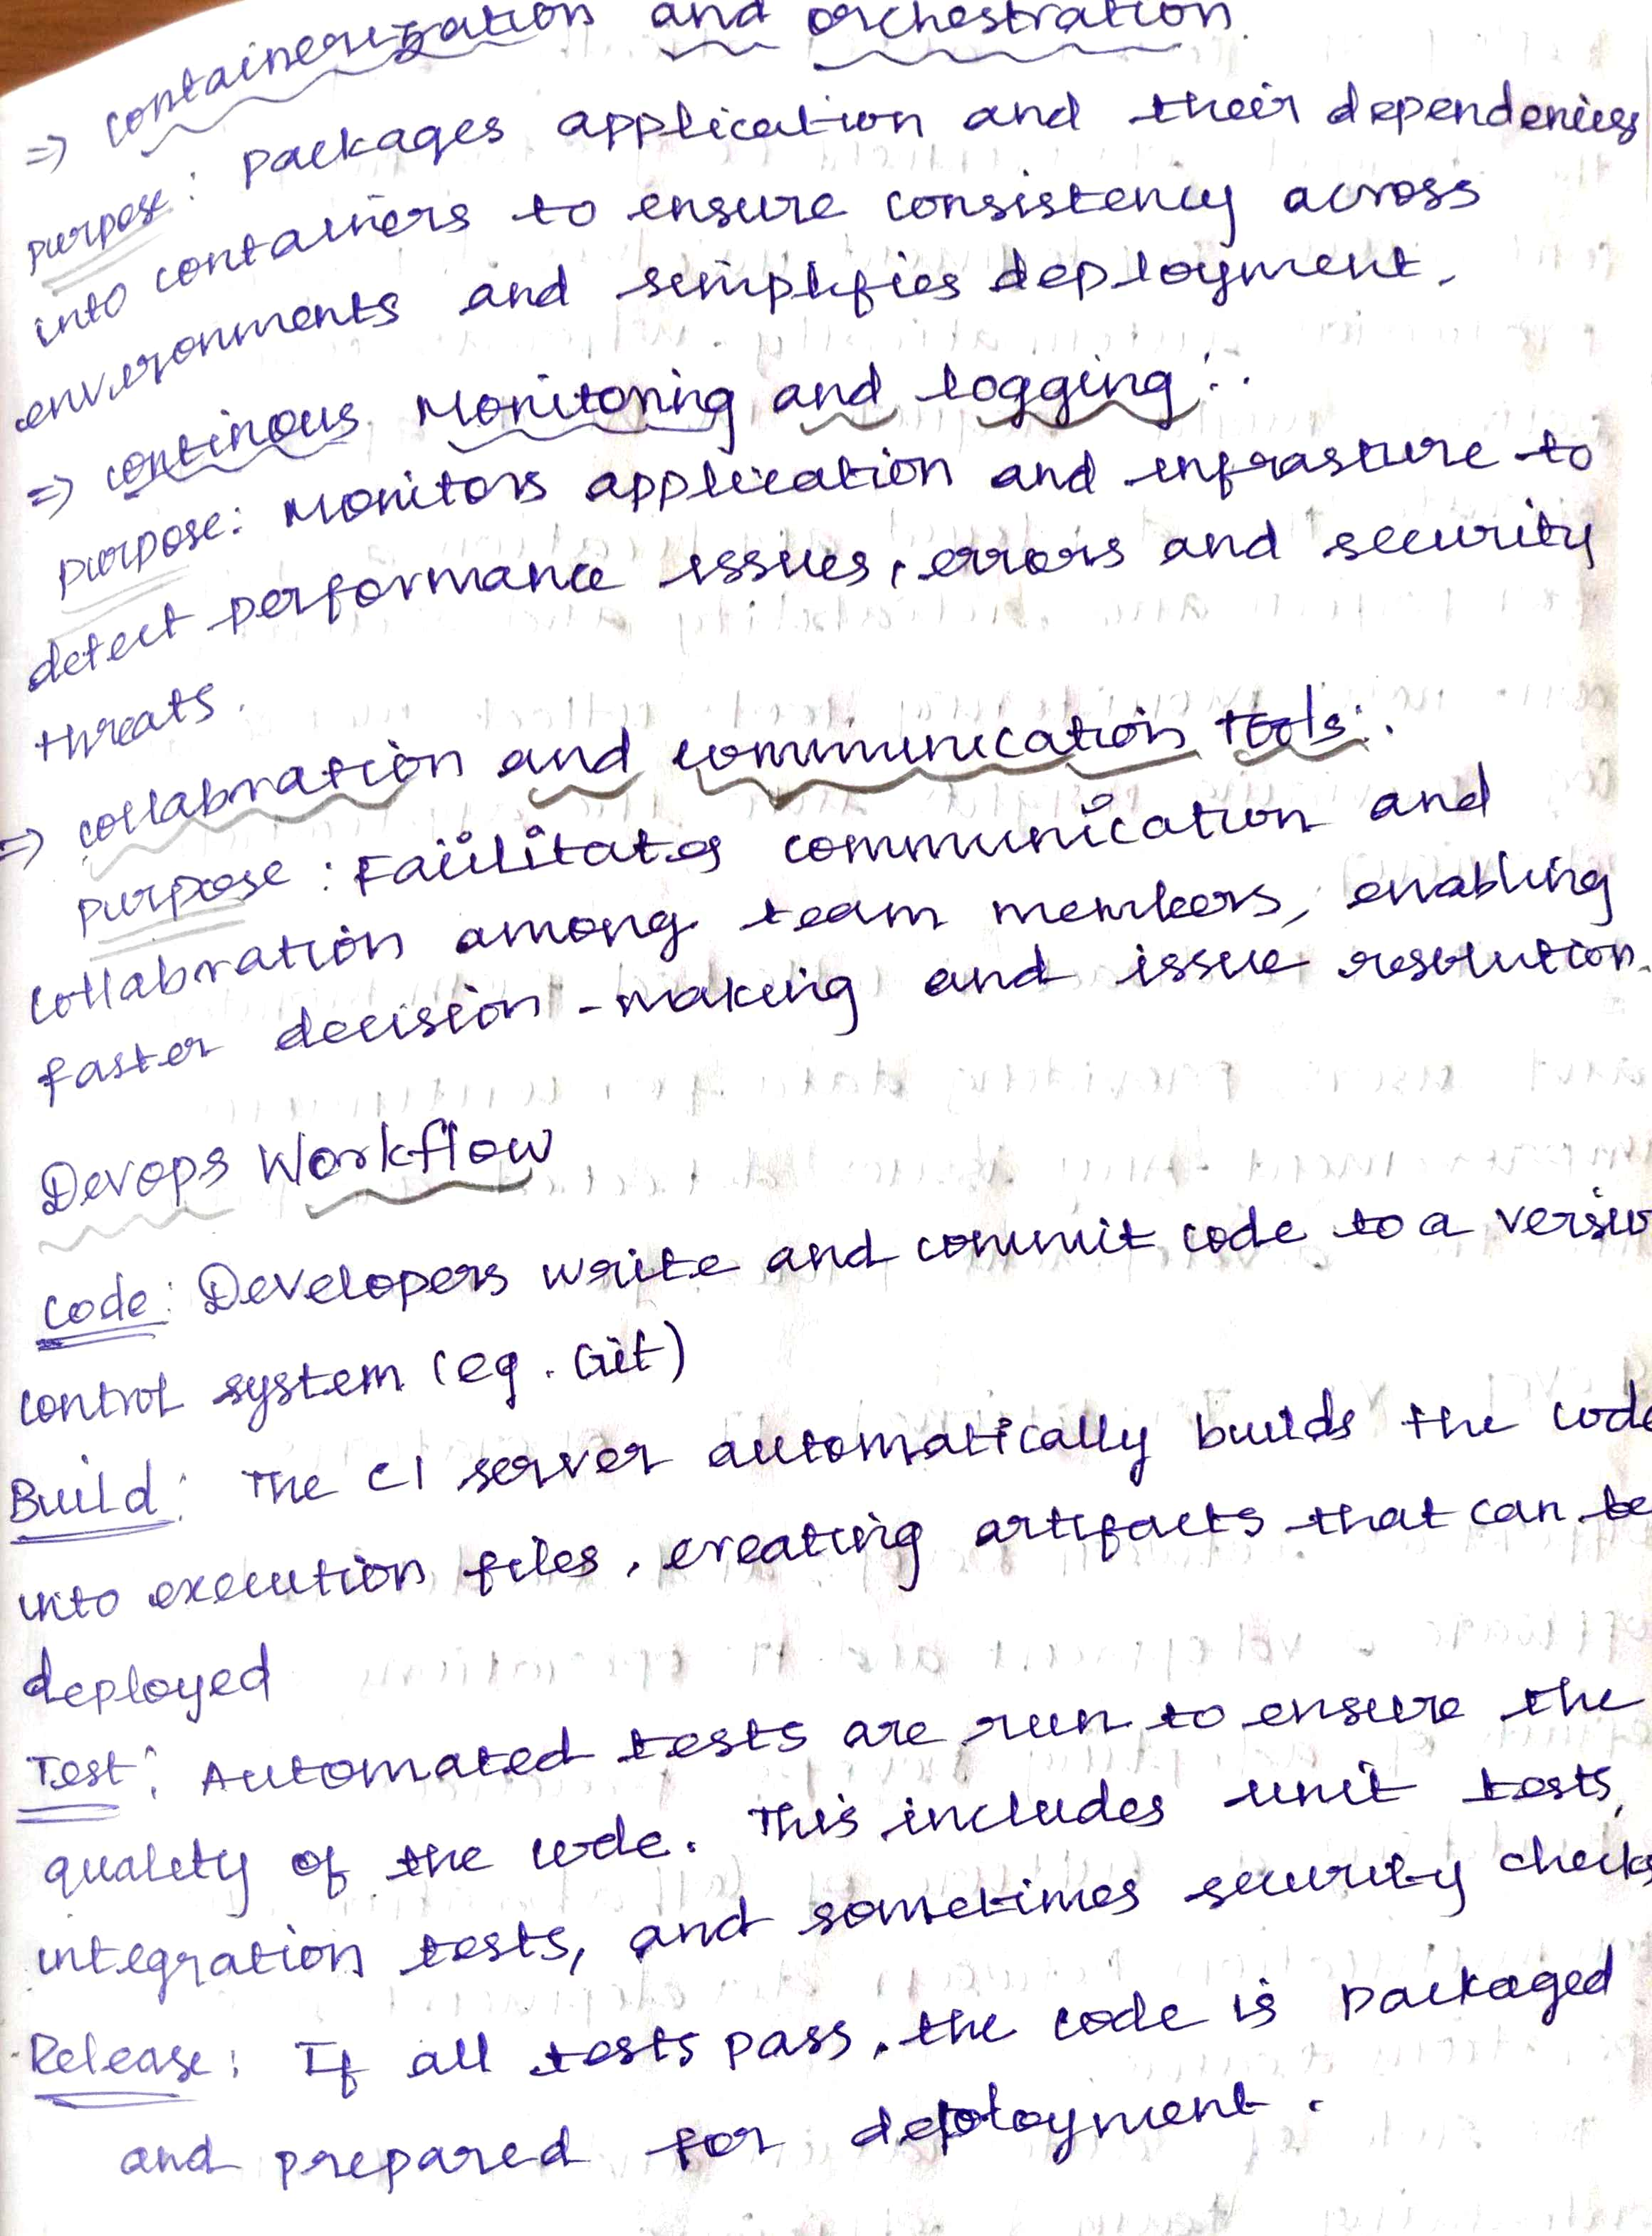 => containerization and orchestration.
purpose: packages application and their dependencies
into containers to ensure consistency across
environments and simplifies deployment.
=> continous Monitoring and logging:
purpose: Monitors application and infrasture to
detect performance issues, errors and security
threats.
=> collabration and communication tools:
purpose: Facilitates communication and
collabration among team members, enabling
faster decision-making and issue resolution.
Devops Workflow
code: Developers write and commit code to a versio
control system (eg. Git)
Build: The CI server automatically builds the code
into execution files, creating artifacts that can be
deployed
Test: Automated tests are run to ensure the
quality of the code. This includes unit tests,
integration tests, and sometimes security checks
Release: If all tests pass, the code is packaged
and prepared for deployment.